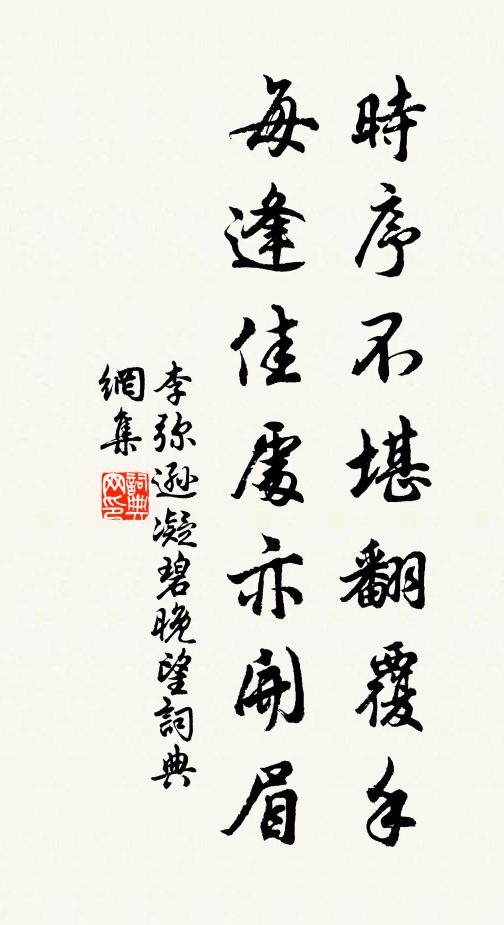 時序不堪翻覆手
每逢佳處亦開眉
李弥遜凝碧晚望詞典
網集
詞典網印